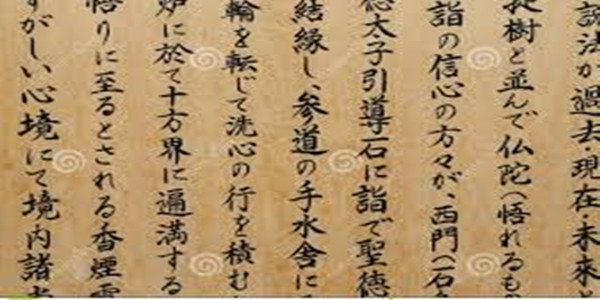 説法か過去現在未来
提樹と並んで仏陀(悟れるも
詣の信心の方々が、西門(石
徳太子引導石に詣で聖徳
結縁し、参道の手水舎に
輪を転じて洗心の行を積む
炉に於て十方界に遍満する
悟りに至るとされる香煙
すがしい心境にて境内諸